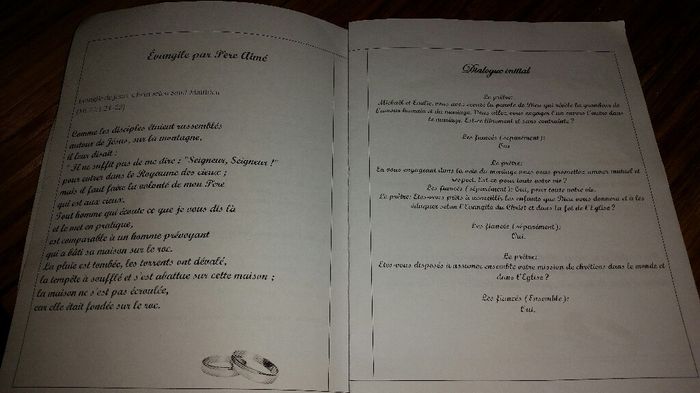 Évangile par Père Aimé
Evangile de Jésus Christ selon saint Matthieu
Comme les disciples étaient rassemblés
autour de Jésus, sur la montagne,
il leur disait :
" Il ne suffit pas de me dire : "Seigneur, Seigneur !"
pour entrer dans le Royaume des cieux ;
mais il faut faire la volonté de mon Père
qui est aux cieux.
Tout homme qui écoute ce que je vous dis là
et le met en pratique,
est comparable à un homme prévoyant
qui a bâti sa maison sur le roc.
La pluie est tombée, les torrents ont dévalé,
la tempête a soufflé et s'est abattue sur cette maison ;
la maison ne s'est pas écroulée,
car elle était fondée sur le roc.
Dialogue initial
Le prêtre:
et vous avez écouté la parole de Dieu qui révèle la grandeur de
l'amour humain et du mariage. Vous allez vous engager l'un envers l'autre dans
le mariage. Est-ce librement et sans contrainte ?
Les fiancés (séparément):
Oui
Le prêtre:
En vous engageant dans la voie du mariage vous vous promettez amour mutuel et
respect. Est-ce pour toute votre vie ?
Les fiancés (séparément): Oui, pour toute notre vie.
Le prêtre: Etes-vous prêts à accueillir les enfants que Dieu vous donnera et à les
éduquer selon l'Evangile du Christ et dans la foi de l'Eglise ?
Les fiancés (séparément):
Oui.
Le prêtre:
Etes-vous disposés à assumer ensemble votre mission de chrétiens dans le monde et
dans l'Eglise ?
Les fiancés (Ensemble):
Oui.